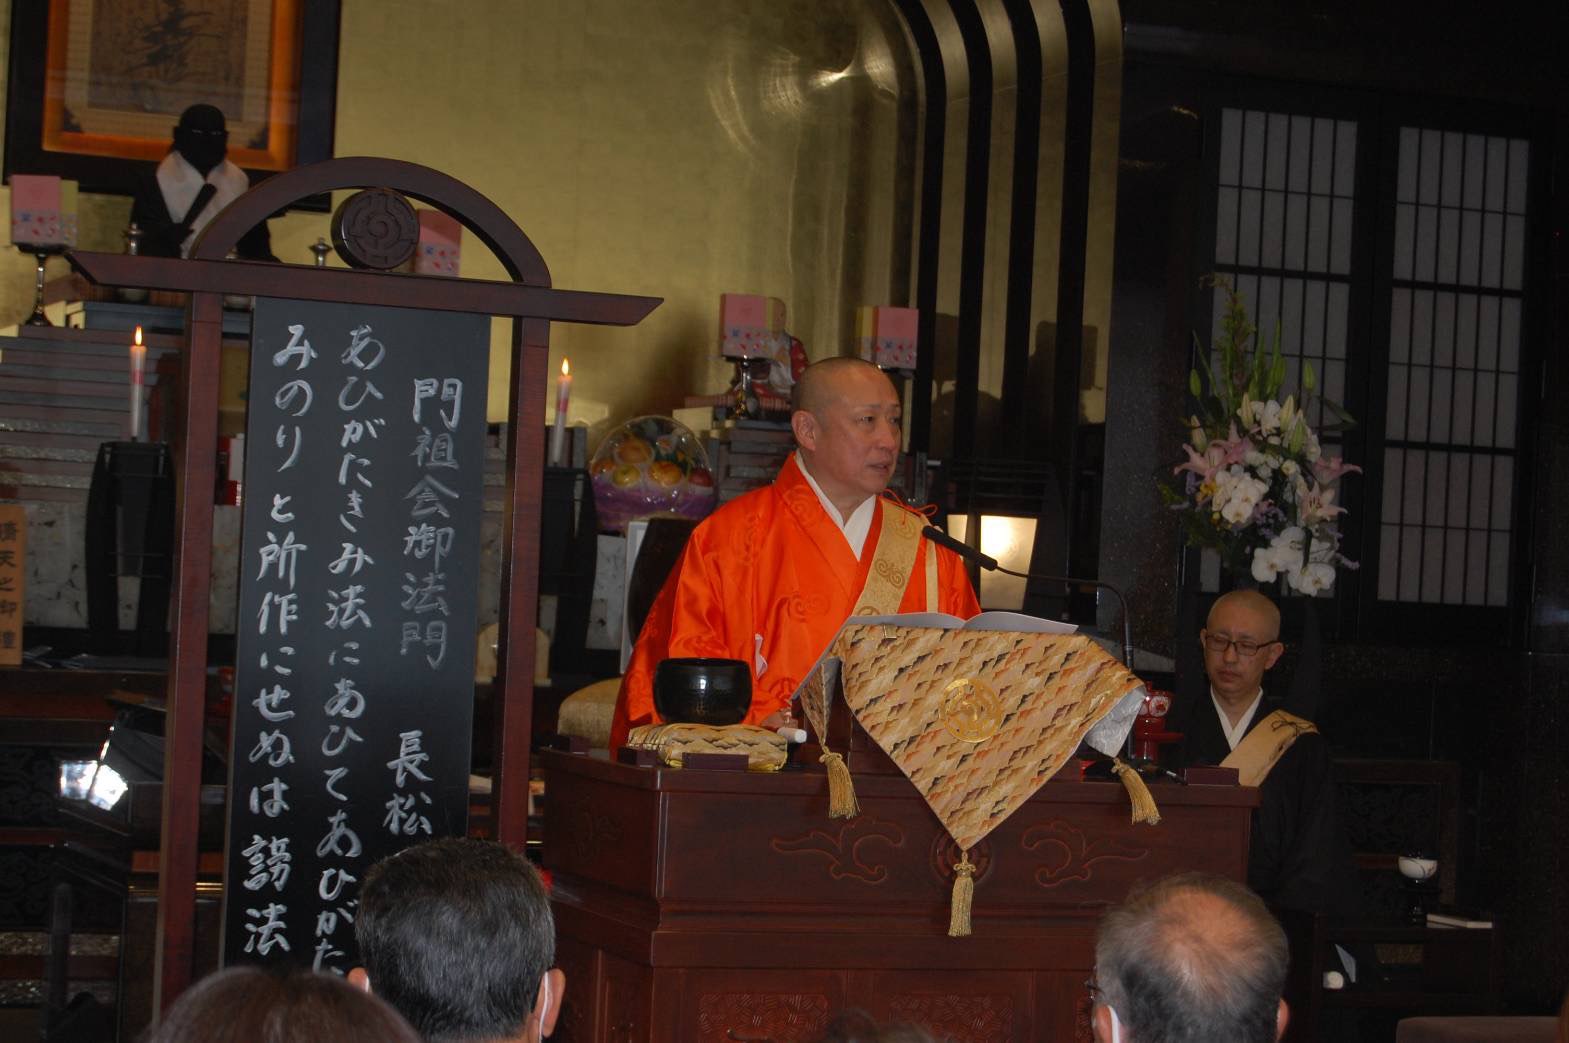 門祖会御法門 長松
あひがたきみ法にあひてあひがた
みのりと所作にせぬは謗法